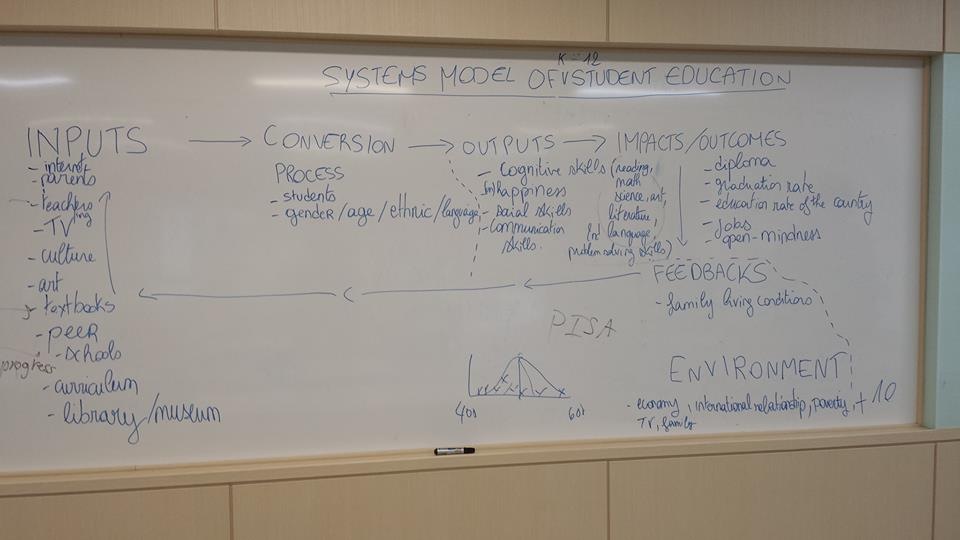 K - 12
SYSTEMS MODEL OF STUDENT EDUCATION
INPUTS
- internet
- parents
- teachers
- TV
- culture
- art
- textbooks
- peer
- schools
progress
- curriculum
- library/museum
CONVERSION
PROCESS
- students
- gender/age/ethnic/language
OUTPUTS
- Cognitive skills (reading,
math
science, art,
literature,
language,
problem solving skills)
happiness
- social skills
- Communication
skills.
IMPACTS/OUTCOMES
- diploma
- graduation rate
- education rate of the country
- Jobs
- open-mindness
FEEDBACKS
- family living conditions
PISA
ENVIRONMENT
- economy, international relationship, poverty, + 10
TV, family